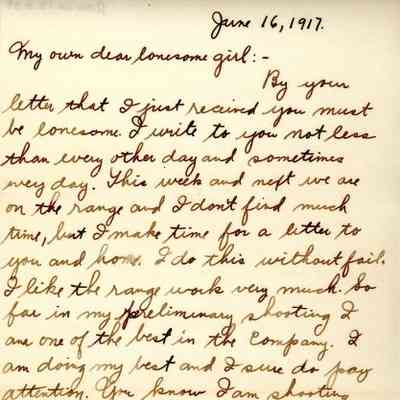 June 16, 1917.
My own dear lonesome girl:-
By your
letter that I just received you must
be lonesome. I write to you not less
than every other day and sometimes
every day. This week and next we are
on the range and I don't find much
time, but I make time for a letter to
you and home. I do this without fail.
I like the range work very much. So
far in my preliminary shooting I
am one of the best in the Company. I
am doing my best and I sure do pay
attention. You know I am shooting